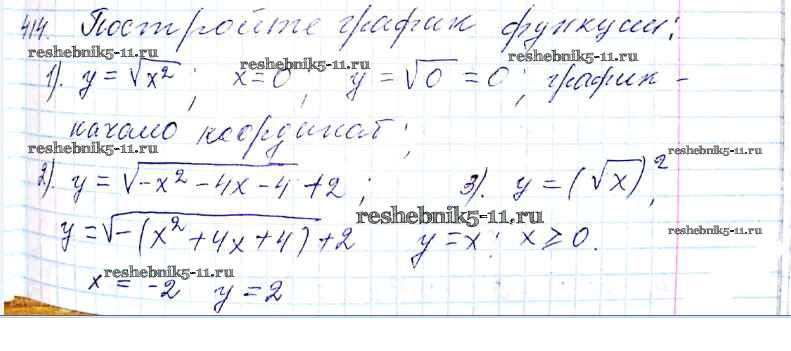 414. Постройте график функции:
reshebnik5-11.ru
reshebnik5-11.ru
1). y = √x²; x=0, y = √0 = 0; график -
reshebnik5-11.ru
начало координат;
reshebnik5-11.ru
reshebnik5-11.ru
2). y = √-x² - 4x - 4 + 2; 3). y = (√x)²,
reshebnik5-11.ru
y = √-(x² + 4x + 4) + 2 y = x; x ≥ 0.
reshebnik5-11.ru
reshebnik5-11.ru
x = -2 y = 2